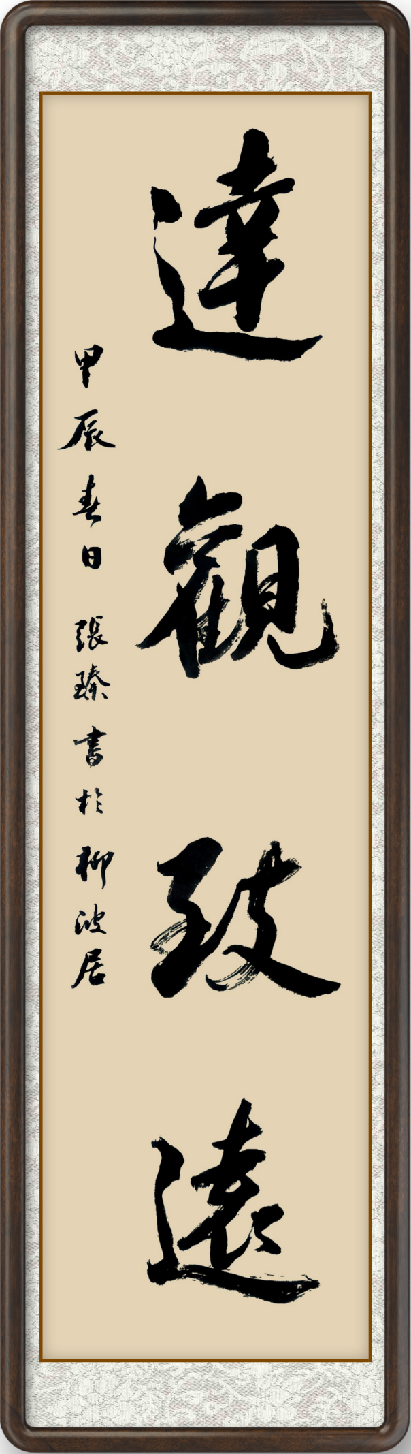 達觀致遠
甲辰春日張臻書於柳波居